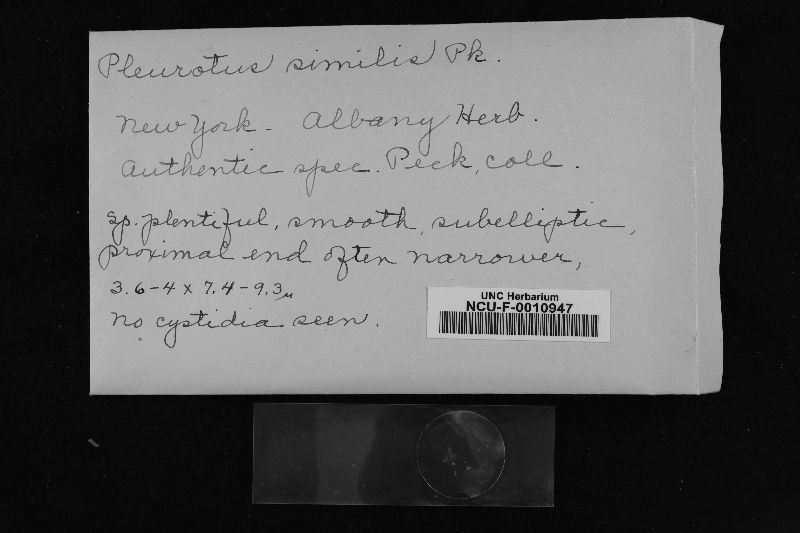 Pleurotus similis Pk.
New York - Albany Herb.
Authentic spec. Peck, coll.
Sp. plentiful, smooth, subelliptic,
proximal end often narrower,
3.6-4 x 7.4-9.3µ
No cystidia seen.
UNC Herbarium
NCU-F-0010947